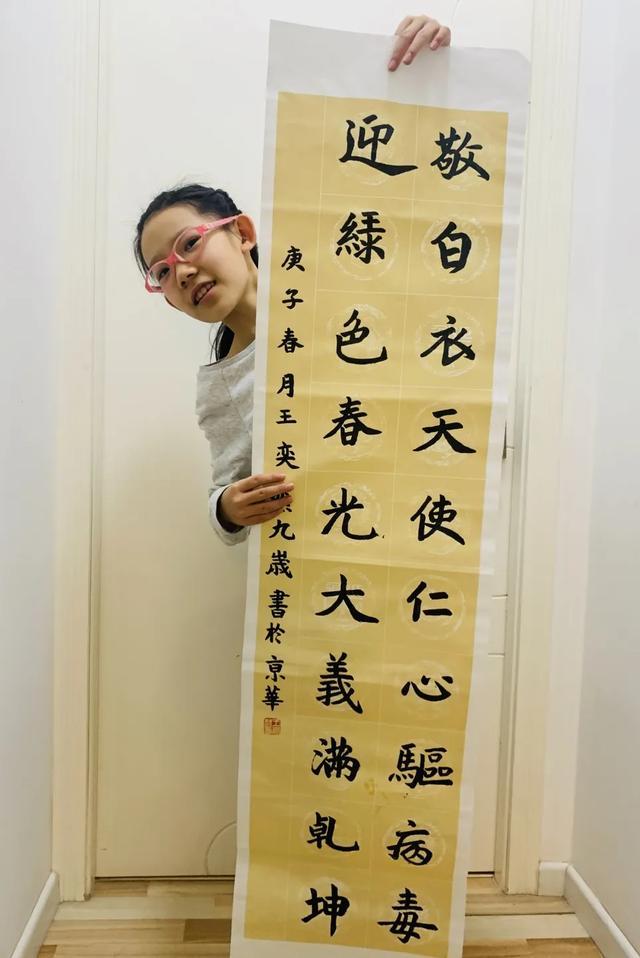 敬白衣天使仁心驅病毒
迎綠色春光大義滿乾坤
庚子春月王奕九歲書於京華